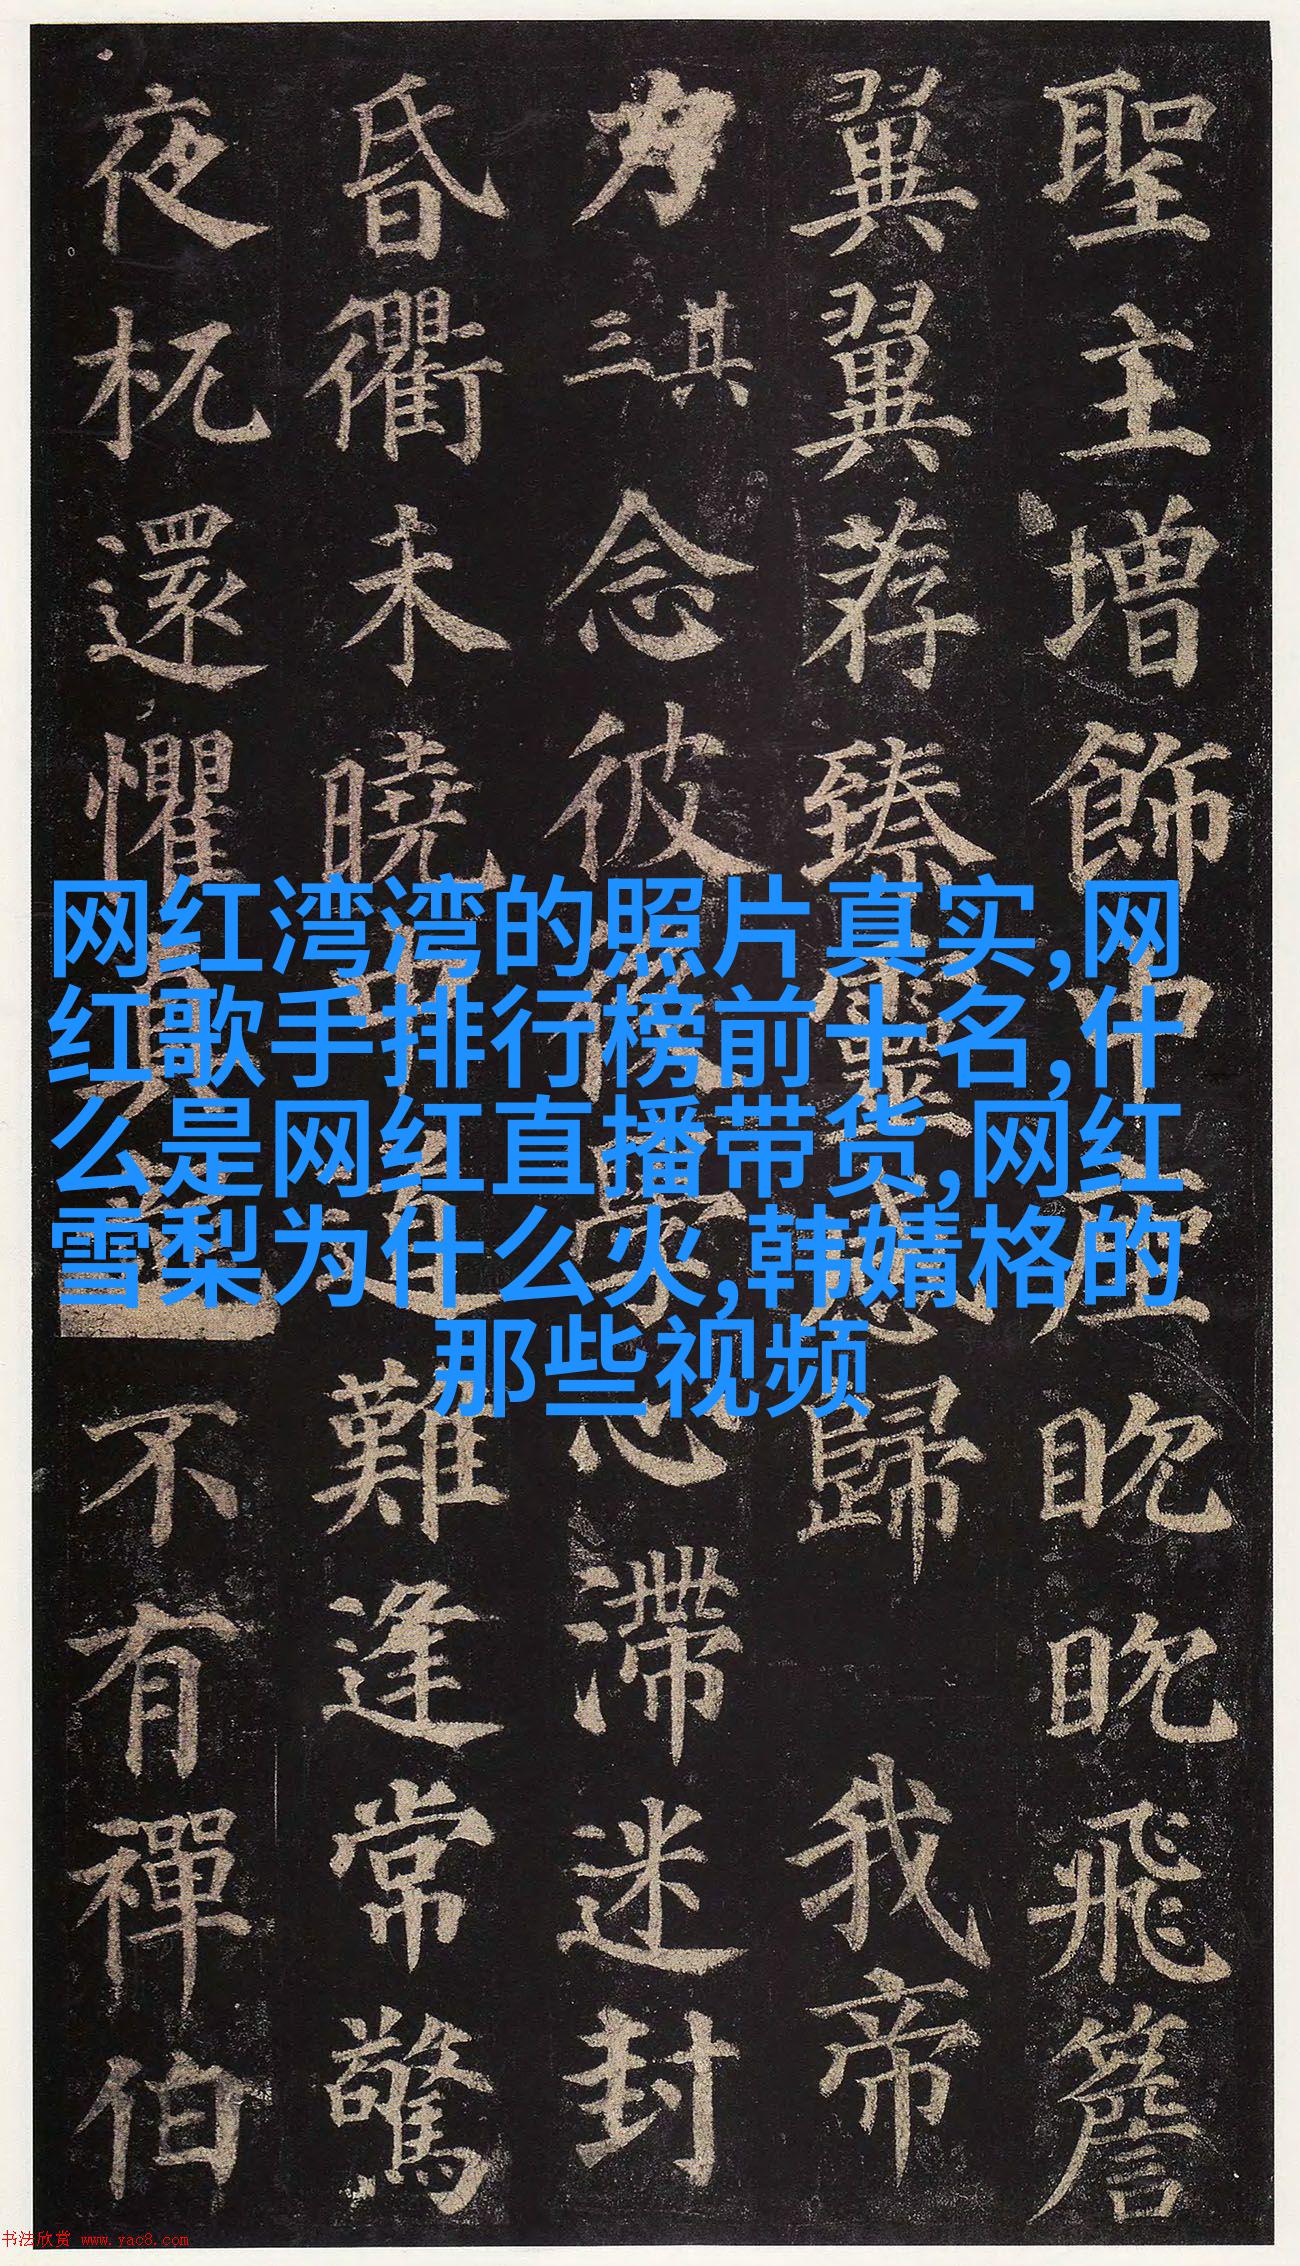 聖主增飾中座眈眈飛簷
翼翼荐臻靈感歸我帝
力其三念彼後學心滯迷封
昏衢未曉道難逢常驚
夜杌還懼真不有禪伯
网红湾湾的照片真实,网
红歌手排行榜前十名,什
么是网红直播带货,网红
雪梨为什么火,韩婧格的
那些视频
书法欣赏 www.yac8.com